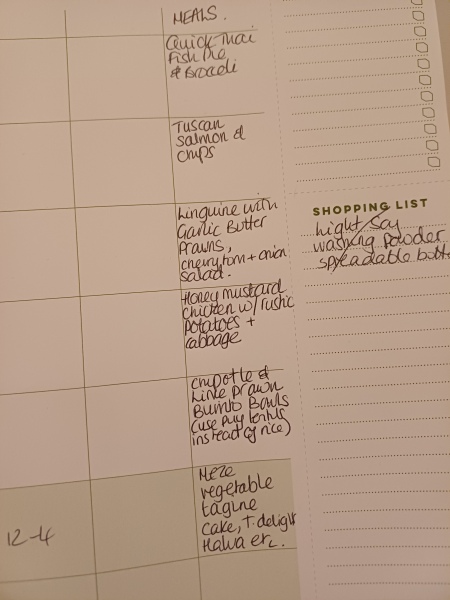 MEALS.
Quick Thai
Fish Pie
& Broccoli
Tuscan
Salmon &
Chips
Linguine with
Garlic Butter
Prawns,
cherrytom + onion
Salad.
Honey mustard
Chicken w/ rustic
potatoes +
cabbage
Chipotle &
Lime Prawn
Burrito Bowls
(use puy lentils
instead of rice)
Meze
vegetable
tagine
cake, t. delight
Halwa etc.
12-4
SHOPPING LIST
light / Soy
washing powder
spreadable butt